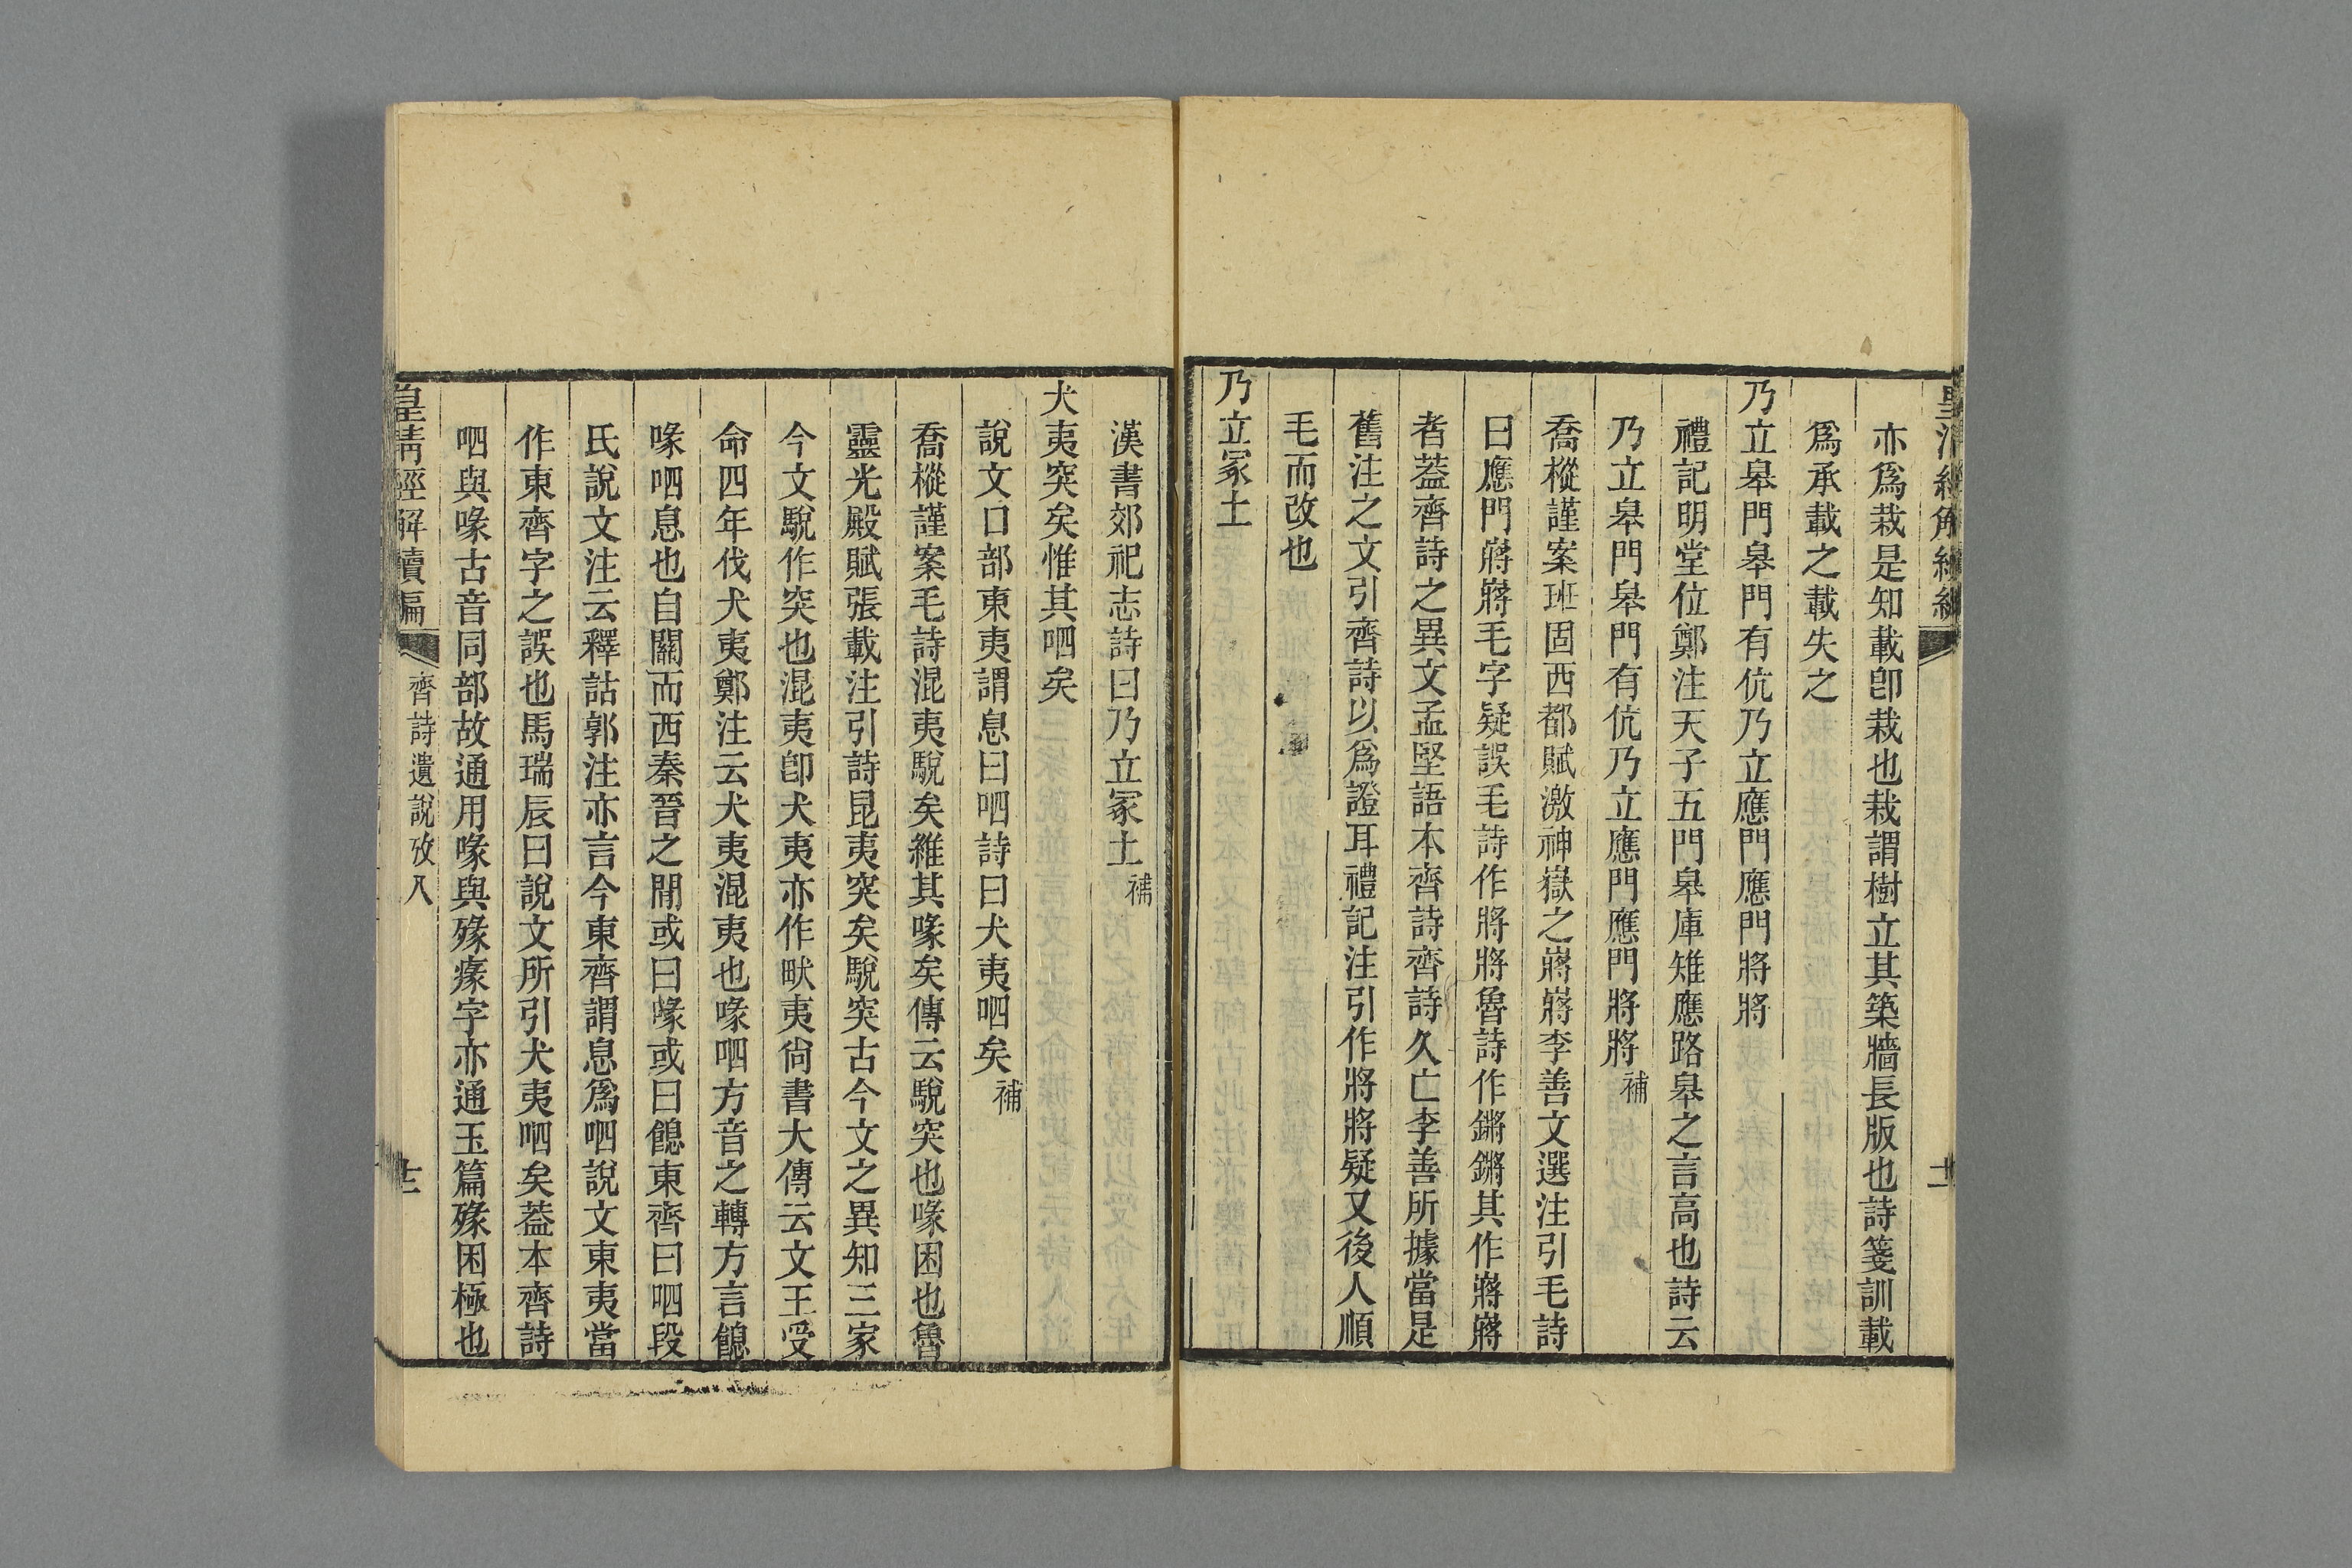 亦爲栽是知載卽栽也栽謂樹立其築牆長版也詩箋訓載
爲承載之載失之
乃立皋門皋門有伉乃立應門應門將將
禮記明堂位鄭注天子五門皋庫雉應路皋之言高也詩云
乃立皋門皋門有伉乃立應門應門將將補
喬樅謹案班固西都賦激神嶽之嶈嶈李善文選注引毛詩
曰應門嶈嶈毛字疑誤毛詩作將將魯詩作鏘鏘其作嶈嶈
者葢齊詩之異文孟堅語本齊詩齊詩久亡李善所據當是
舊注之文引齊詩以爲證耳禮記注引作將將疑又後人順
毛而改也
乃立冢土
漢書郊祀志詩曰乃立冢土補
犬夷突矣惟其呬矣
說文口部東夷謂息曰呬詩曰犬夷呬矣補
喬樅謹案毛詩混夷駾矣維其喙矣傳云駾突也喙困也魯
靈光殿賦張載注引詩昆夷突矣駾突古今文之異知三家
今文駾作突也混夷卽犬夷亦作畎夷尙書大傳云文王受
命四年伐犬夷鄭注云犬夷混夷也喙呬方音之轉方言餽
喙呬息也自關而西秦晉之閒或曰喙或曰餽東齊曰呬段
氏說文注云釋詁郭注亦言今東齊謂息爲呬說文東夷當
作東齊字之誤也馬瑞辰曰說文所引犬夷呬矣葢本齊詩
呬與喙古音同部故通用喙與殔瘃字亦通玉篇殔困極也
皇淸經解續編
齊詩遺說攷八